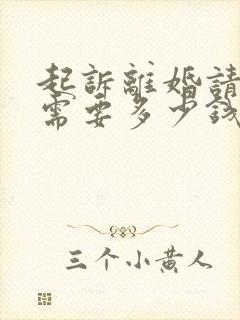 起訴離婚請
需要多少錢
三个小黄人